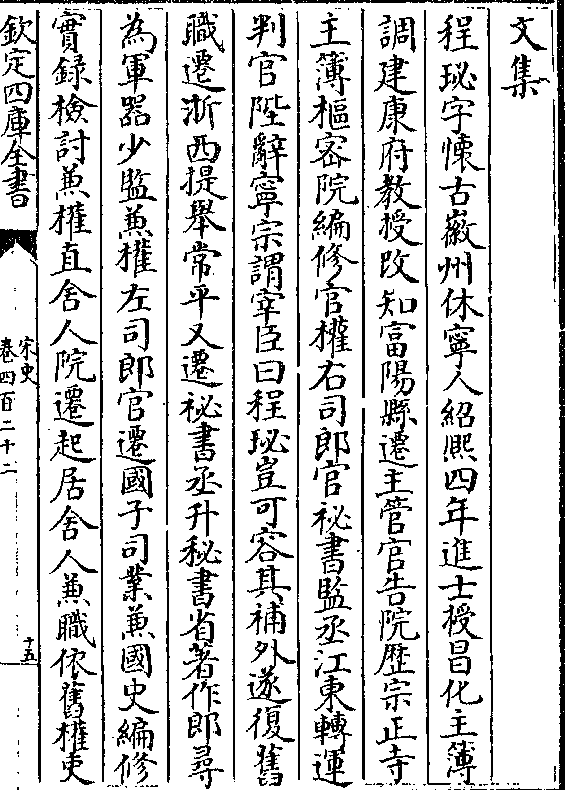 文集
程珌字懐古徽州休寧人紹熙四年進士授昌化主簿
調建康府教授改知富陽縣遷主管官告院歴宗正寺
主簿樞宻院編修官權右司郎官祕書監丞江東轉運
判官陛辭寧宗謂宰臣曰程珌豈可容其補外遂復舊
職遷浙西提舉常平又遷祕書丞升秘書省著作郎尋
為軍器少監兼權左司郎官遷國子司業兼國史編修
實録檢討兼權直舍人院遷起居舍人兼職依舊權吏
欽定四庫全書
宋史
卷四百二十二
十五